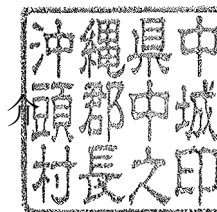 沖縄県中
頭郡中城
村長之印